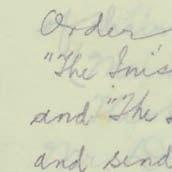 Order
"The Inis
and "The
and send